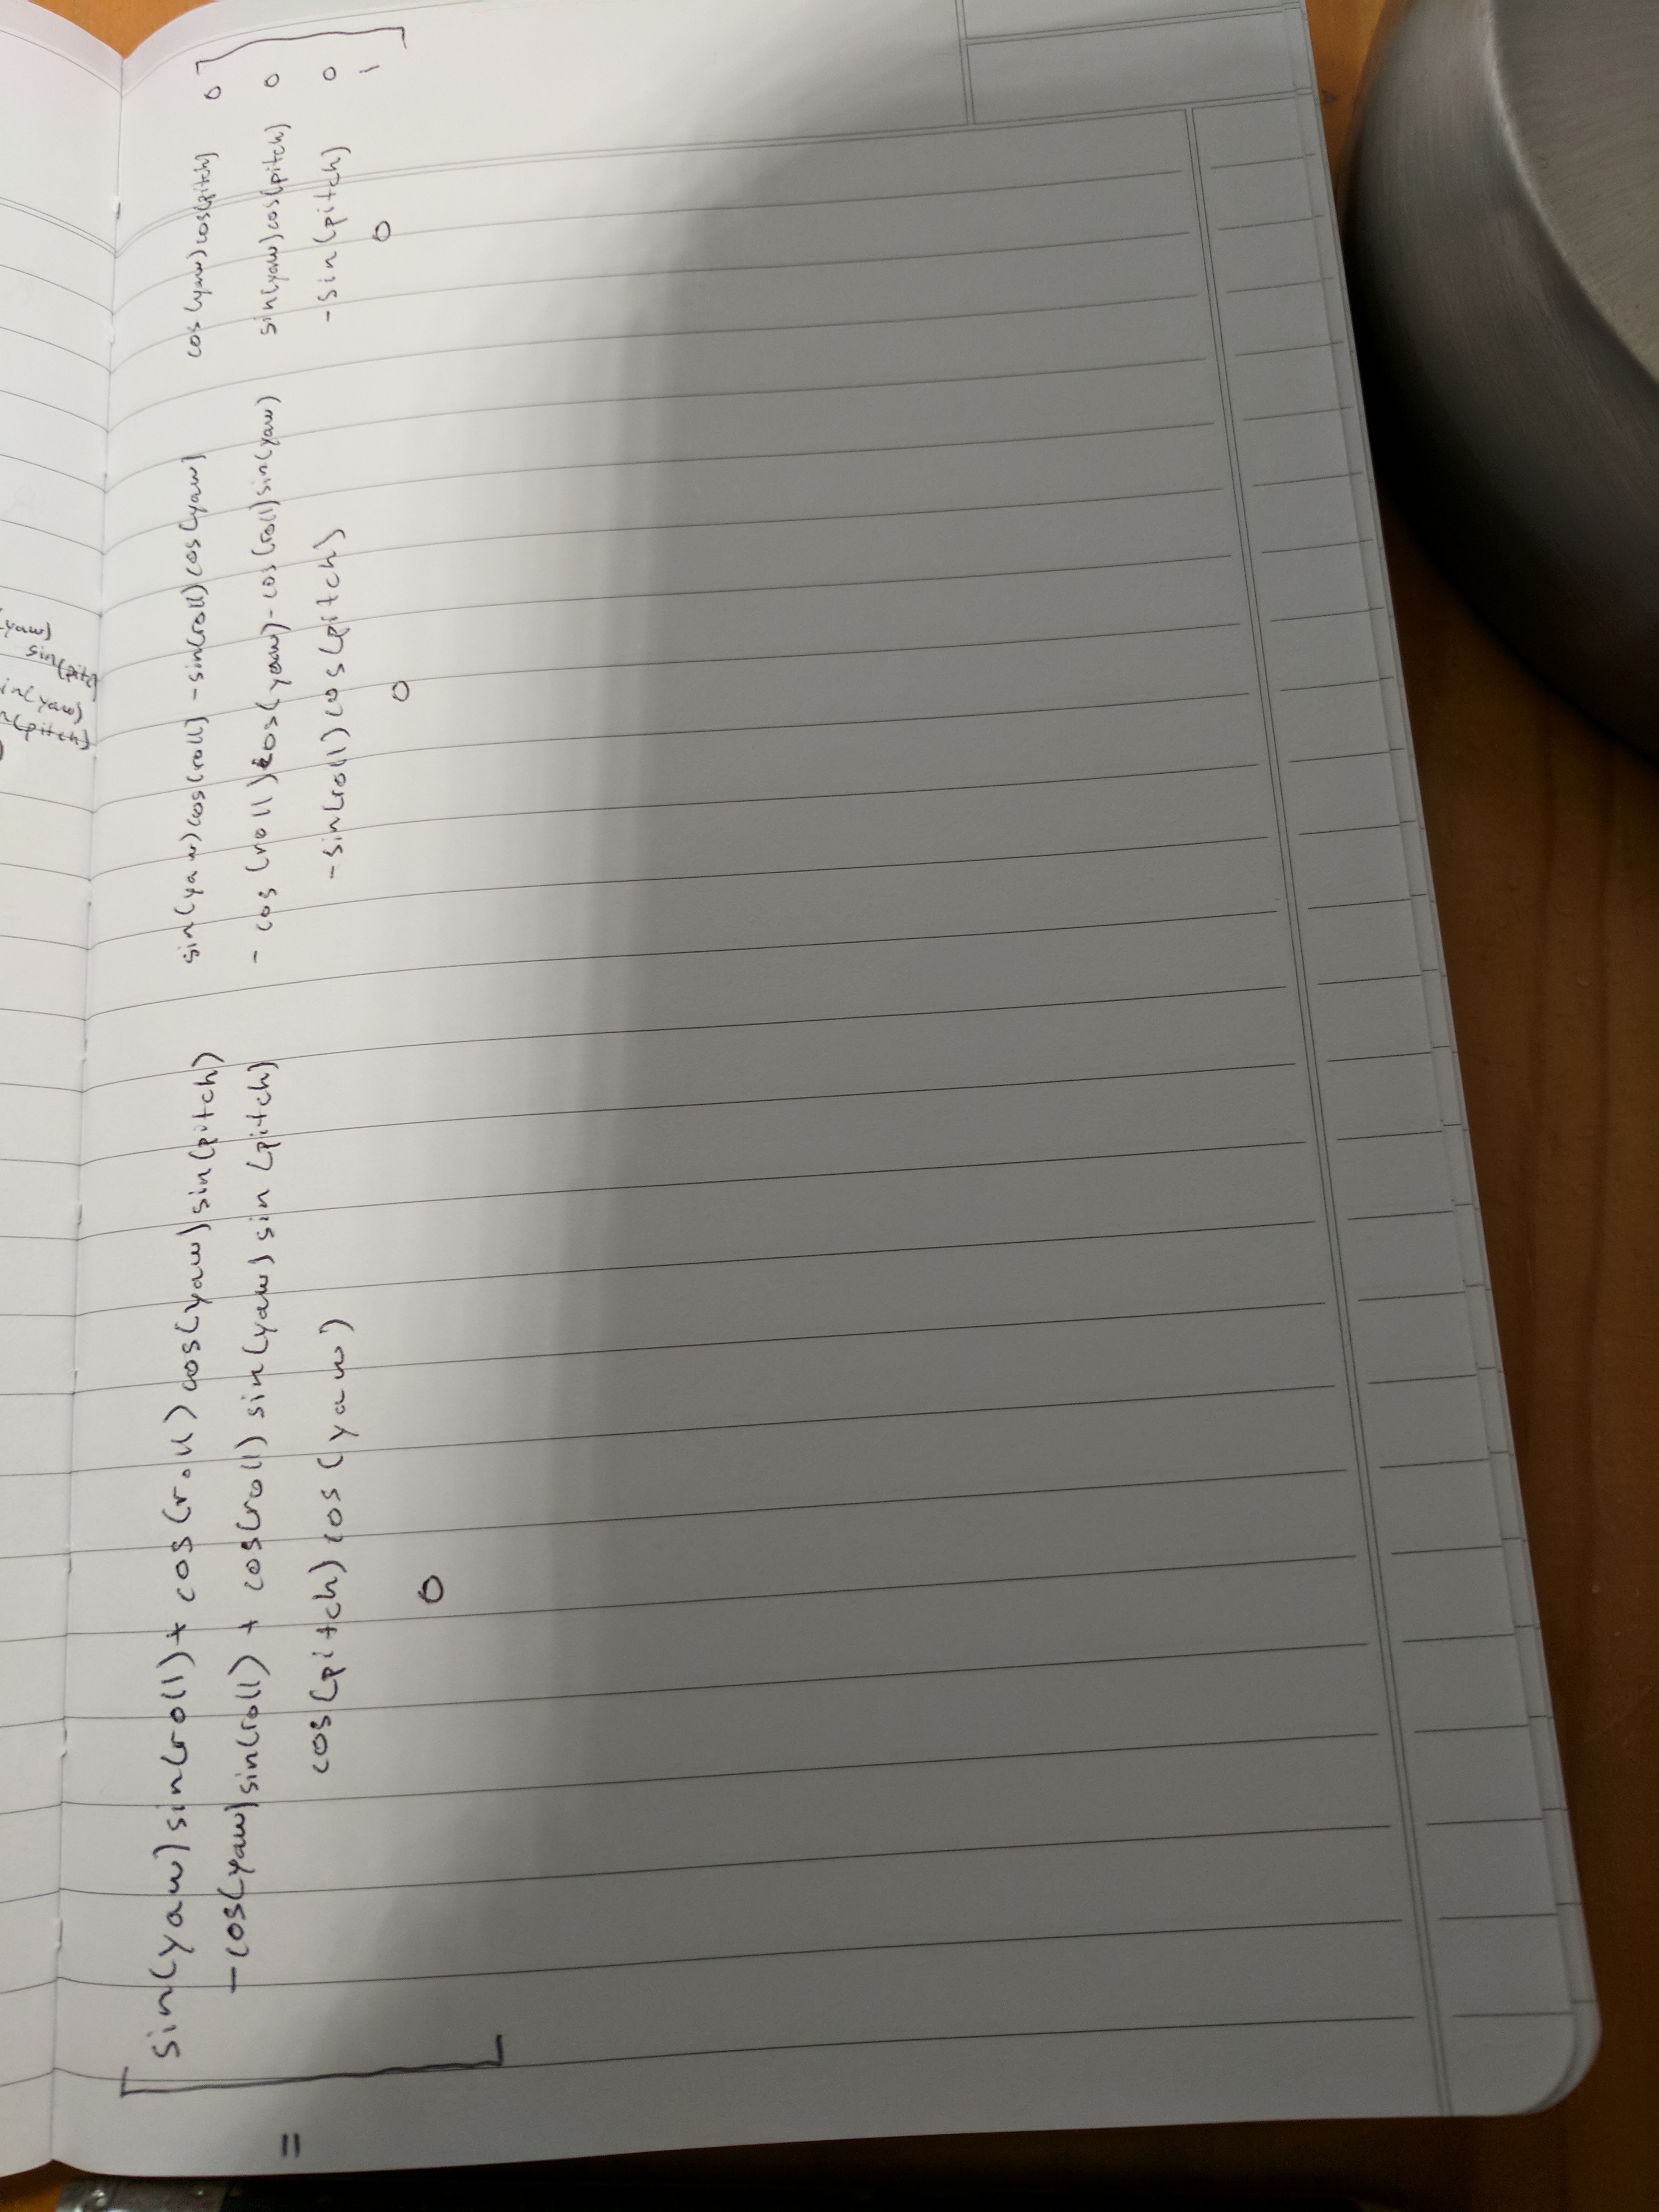 sin(yaw)sin(roll)+ cos(roll) cos(yaw)sin(pitch) sin(yaw)cos(roll) - sin(roll)cos(yaw) cos(yaw)cos(pitch) 0
-cos(yaw)sin(roll) + cos(roll) sin(yaw) sin (pitch) - cos (roll)cos(yaw) - cos(roll)sin(yaw) sin(yaw)cos(pitch) 0
= cos(pitch) cos (yaw) -sin(roll)cos(pitch) -sin(pitch) 0
0 0 0 1
yaw)
sin(pitc
in(yaw)
n(pitch)